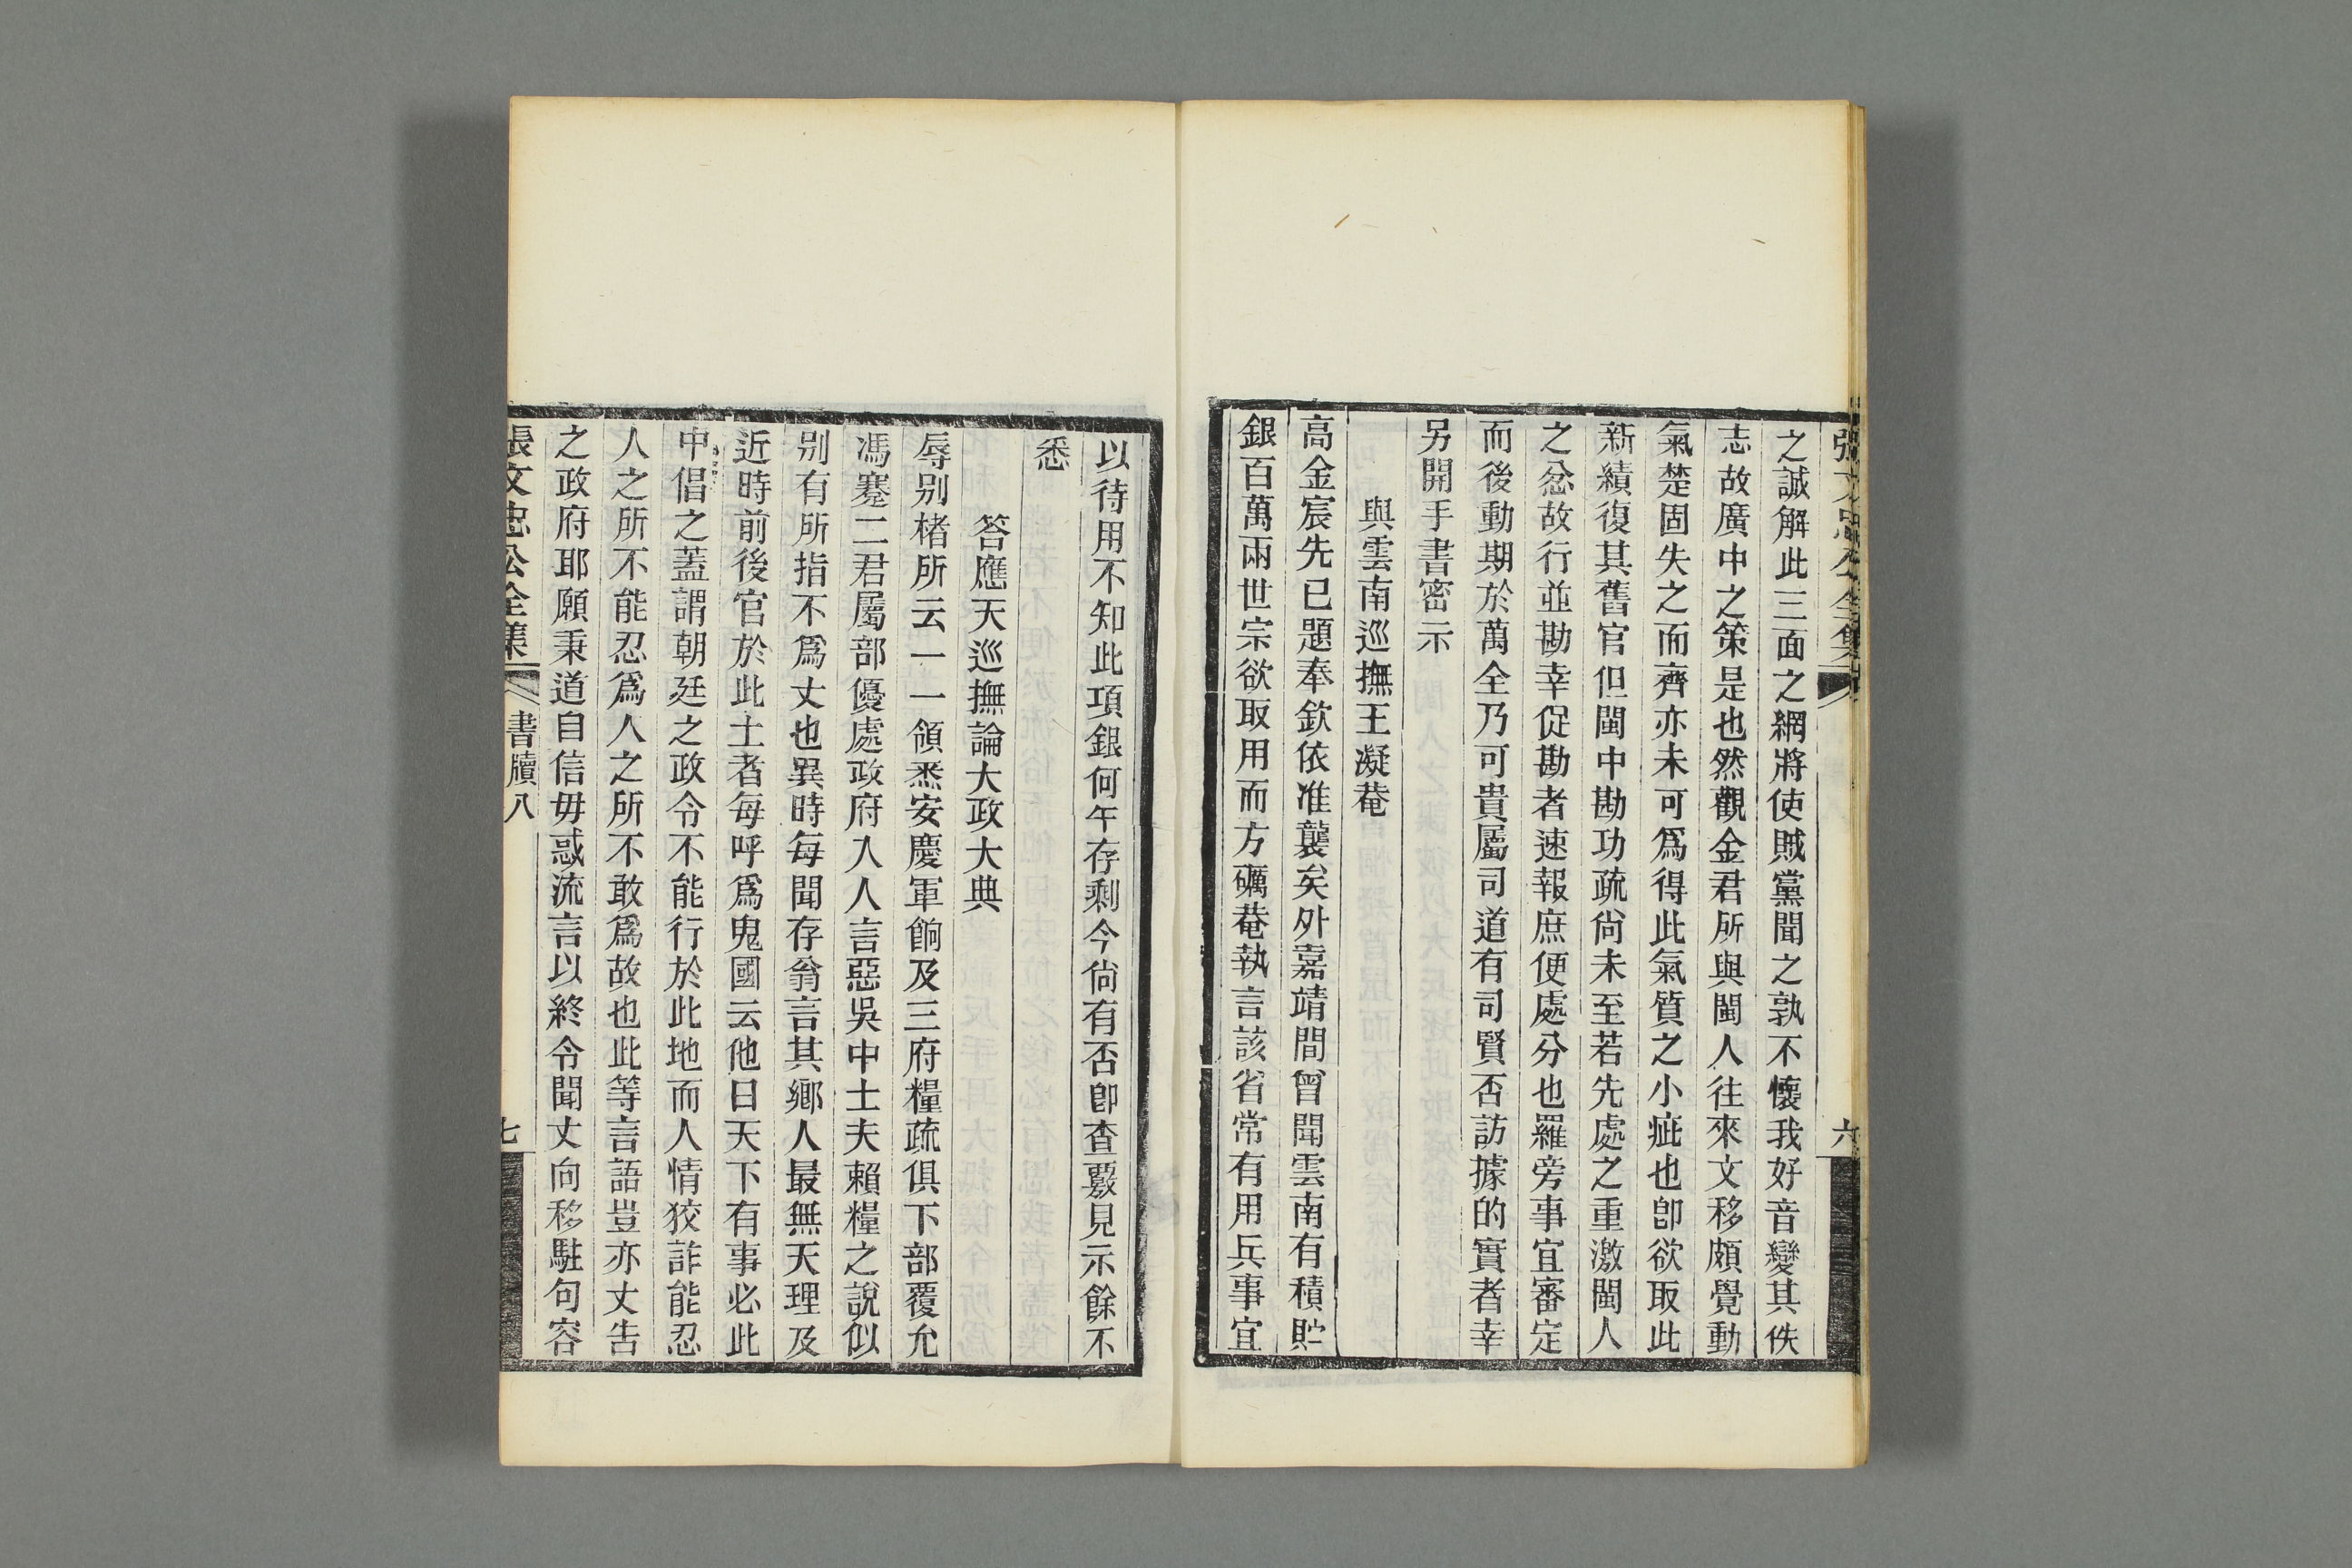 張文忠公全集
六
之誠解此三面之網將使賊黨聞之孰不懷我好音變其佚
志故廣中之策是也然觀金君所與閩人往來文移頗覺動
氣楚固失之而齊亦未可爲得此氣質之小疵也卽欲取此
新績復其舊官但閩中勘功疏尙未至若先處之重激閩人
之忿故行並勘幸促勘者速報庶便處分也羅旁事宜審定
而後動期於萬全乃可貴屬司道有司賢否訪據的實者幸
另開手書密示
與雲南巡撫王凝菴
高金宸先已題奉欽依准襲矣外嘉靖間曾聞雲南有積貯
銀百萬兩世宗欲取用而方礪菴執言該省常有用兵事宜
以待用不知此項銀何午存剩今尙有否卽查覈見示餘不
悉
答應天巡撫論大政大典
辱别楮所云一一領悉安慶軍餉及三府糧疏俱下部覆允
馮蹇二君屬部優處政府人人言惡吳中士夫賴糧之說似
别有所指不爲丈也異時每聞存翁言其鄉人最無天理及
近時前後官於此土者每呼爲鬼國云他日天下有事必此
中倡之蓋謂朝廷之政令不能行於此地而人情狡詐能忍
人之所不能忍爲人之所不敢爲故也此等言語豈亦丈告
之政府耶願秉道自信毋惑流言以終令聞丈向移駐句容
張文忠公全集
書牘八
七